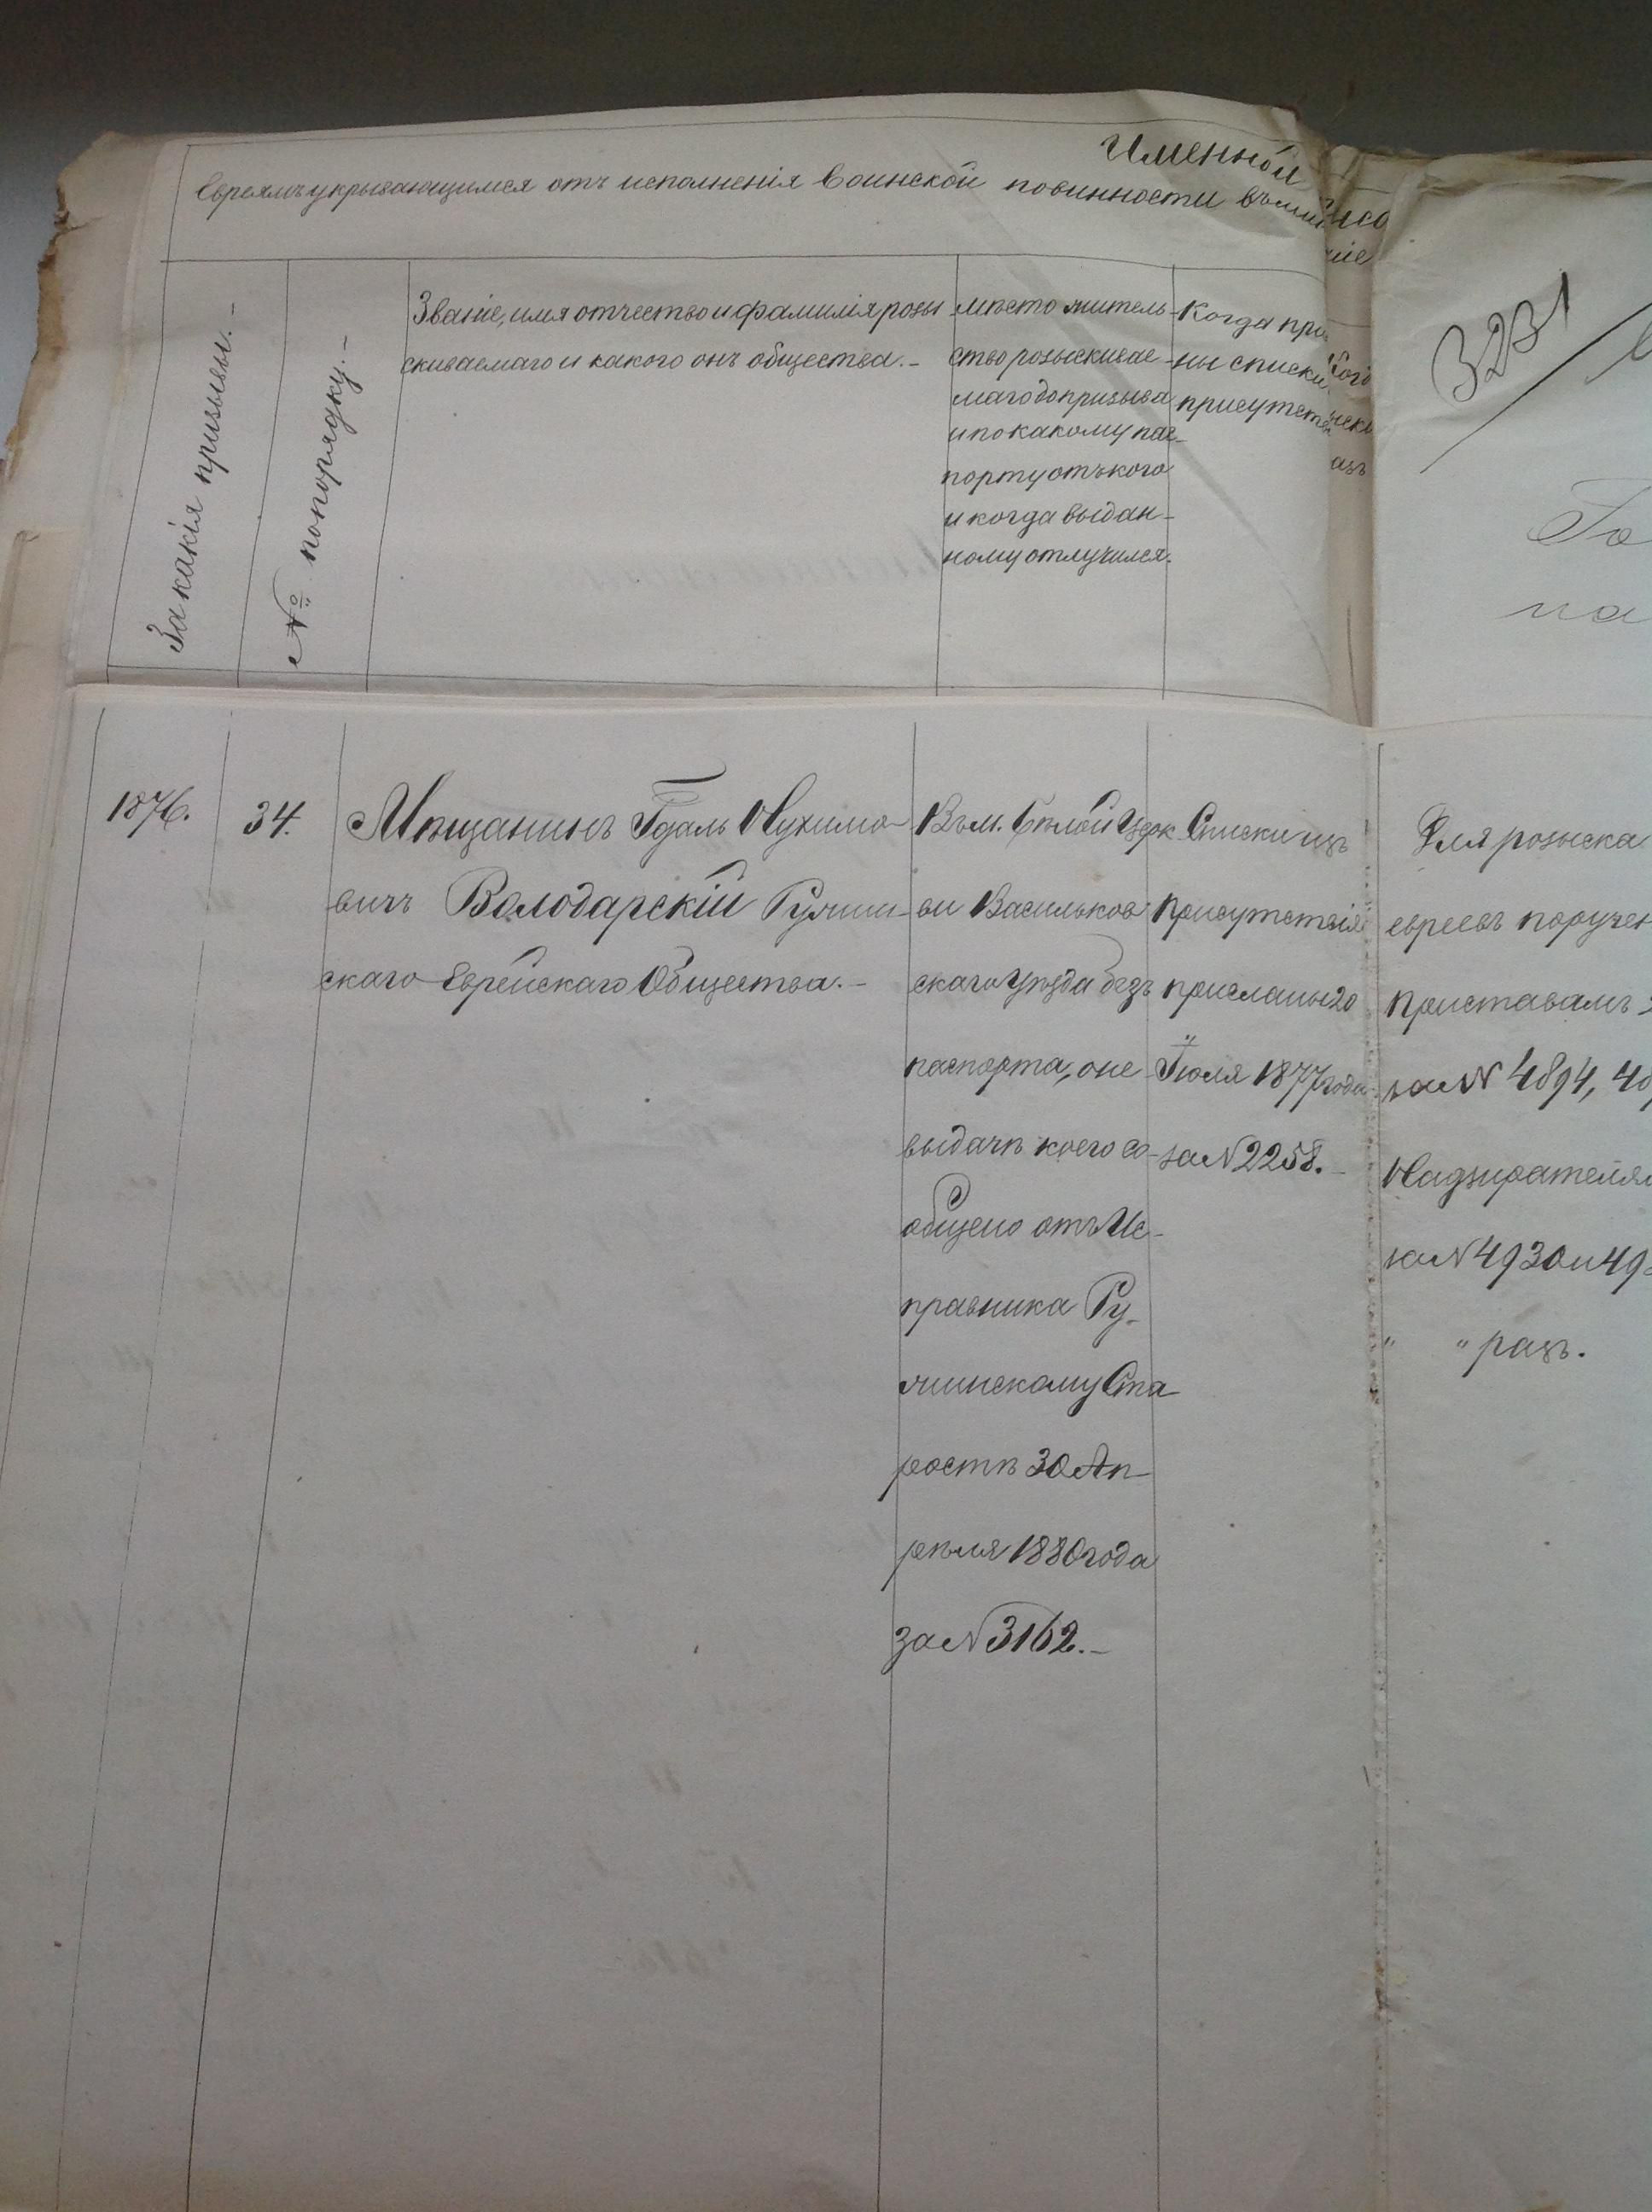 Именной
Евреямъ укрывающимся отъ исполненія воинской повинности
За какія призывы.-
№ по порядку.-
Званіе, имя отчество и фамилія розы
скиваемаго и какого онъ общества.-
Мѣсто житель-
ство розыскивае-
маго до призыва
и по какому пас-
порту отъ кого
и когда выдан-
ному отлучился.
Когда при
ны списки
присутств
3231
1876.
34.
Мѣщанинъ Гдаль Нухимо-
вичъ Володарскій Ружин-
скаго Еврейскаго Общества.-
Въ м. Бѣлой Церк
ви Васильков
скаго Уѣзда безъ
паспорта, о не
выдачѣ коего со-
общено отъ Ис-
правника Ру-
жинскому Ста
ростѣ 30 Ап-
рѣля 1880 года
за N 3162.-
Списки изъ
Присутствія
присланы 20
Іюля 1877 года
за N 2258.-
Для розыска
евреевъ поручен
Приставамъ
за NN 4894, 48
Надзирателям
за N 4930 и 49
" " разъ.